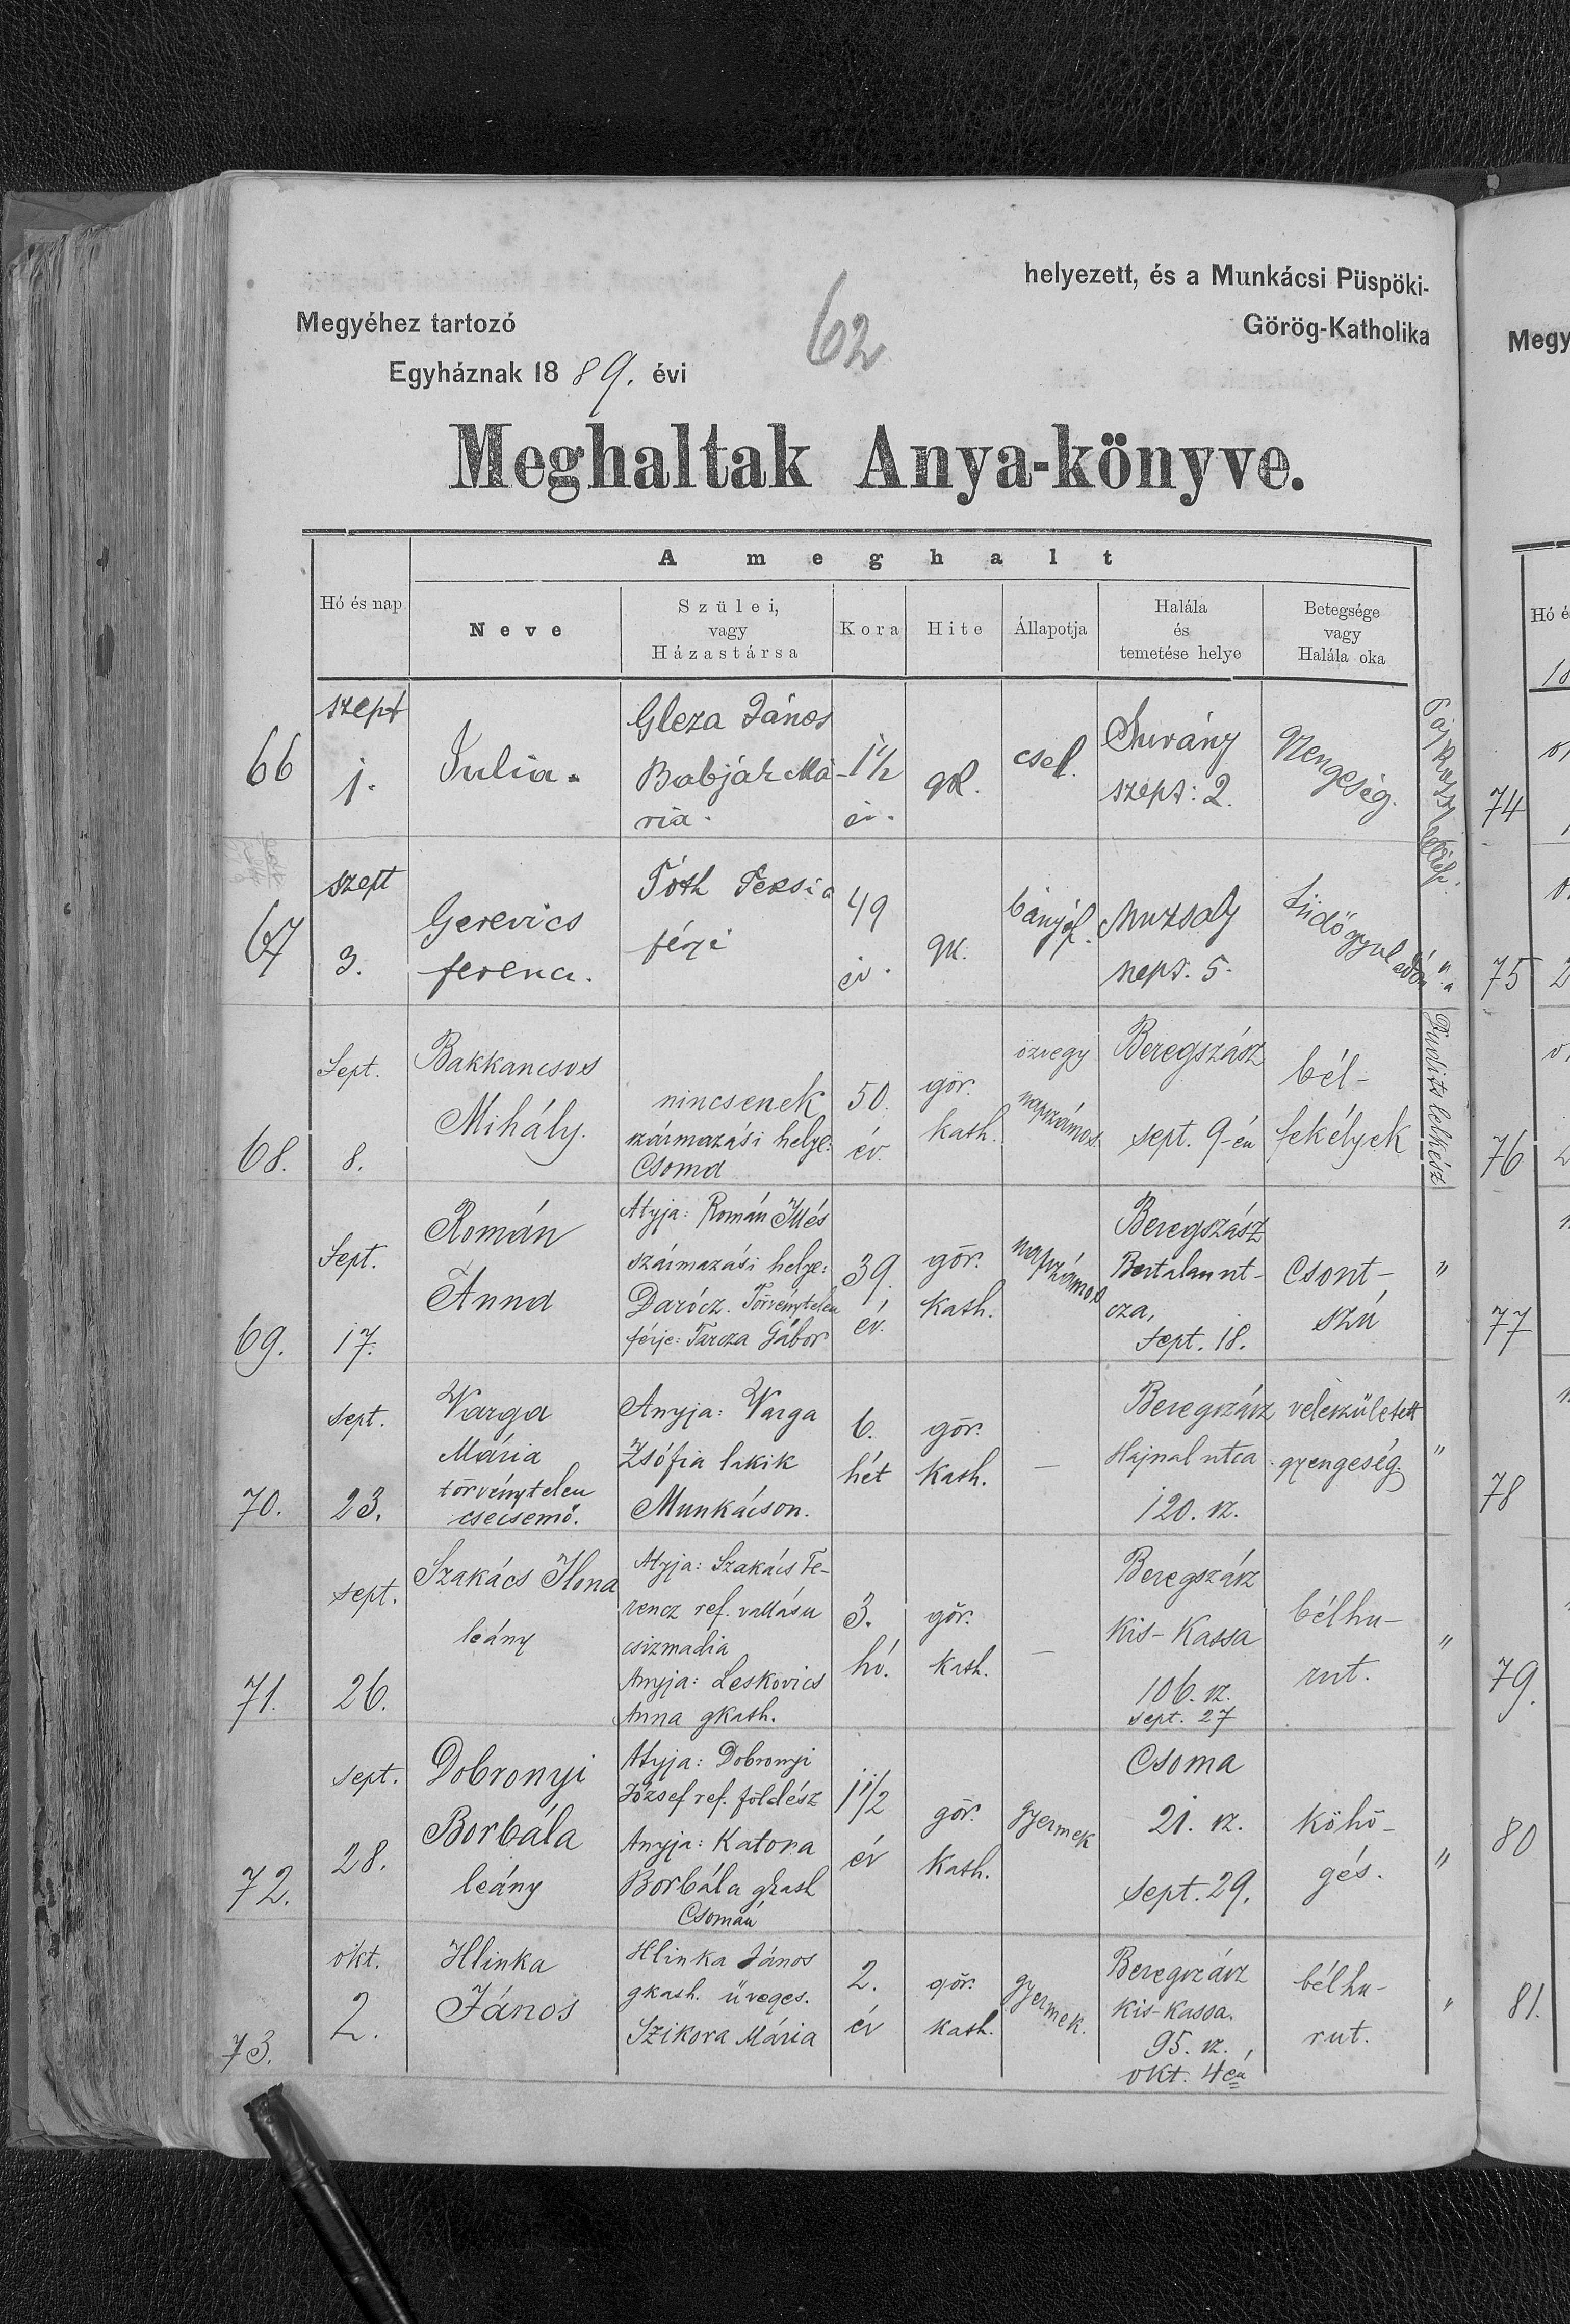 helyezett, és a Munkácsi Püspöki-
Megyéhez tartozó
Görög-Katholika
62
Egyháznak 1889. évi
Meghaltak Anya-könyve.
A meghalt
Hó és nap
Neve
Szülei,
vagy
Házastársa
Kora
Hite
Állapotja
Halála
és
temetése helye
Betegsége
vagy
Halála oka
66
szept
1.
Julia.
Gleza János
Babják Má-
ria.
1 1/2
év.
gk.
csel.
Surány
szept: 2.
67
szept
3.
Gerevics
ferencz.
Tóth
férje
49
év.
gk.
Muzsaly
szept. 5.
68.
Sept.
8.
Bakkancsos
Mihály.
nincsenek
származási helye:
Csoma
50.
év.
gör.
kath.
özvegy
napszámos
Beregszász
sept. 9-én
bél-
fekélyek
Sudits lelkész
69.
Sept.
17.
Román
Anna
Atyja: Román Illés
származási helye:
Darócz. Törvénytelen
férje: Tarcza Gábor
39.
év.
gör.
kath.
napszámos
Beregszász
Bertalan ut-
cza,
sept. 18.
Csont-
szú
"
70.
sept.
23.
Varga
Mária
törvénytelen
csecsemő.
Anyja: Varga
Zsófia lakik
Munkácson.
6.
hét
gör.
kath.
—
Beregszász
Hajnal utca
120. sz.
veleszületett
gyengeség
"
71.
sept.
26.
Szakács Ilona
leány
Atyja: Szakács Fe-
rencz ref. vallásu
csizmadia
Anyja: Leskovics
Anna gkath.
3.
hó.
gör.
kath.
—
Beregszász
Kis-Kassa
106. sz.
sept. 27
bélhu-
rut.
"
72.
sept.
28.
Dobronyi
Borbála
leány
Atyja: Dobronyi
József ref. földész
Anyja: Katona
Borbála gkath
Csomán
1 1/2
év
gör.
kath.
gyermek
Csoma
21. sz.
sept. 29.
köhö-
gés.
"
73.
okt.
2.
Hlinka
János
Hlinka János
gkath. üveges.
Szikora Mária
2.
év
gör.
kath.
gyermek.
Beregszász
Kis-Kassa.
95. sz.
okt. 4én
bélhu-
rut.
"
Megy
Hó é
74
75
76
77
78
79.
80
81.